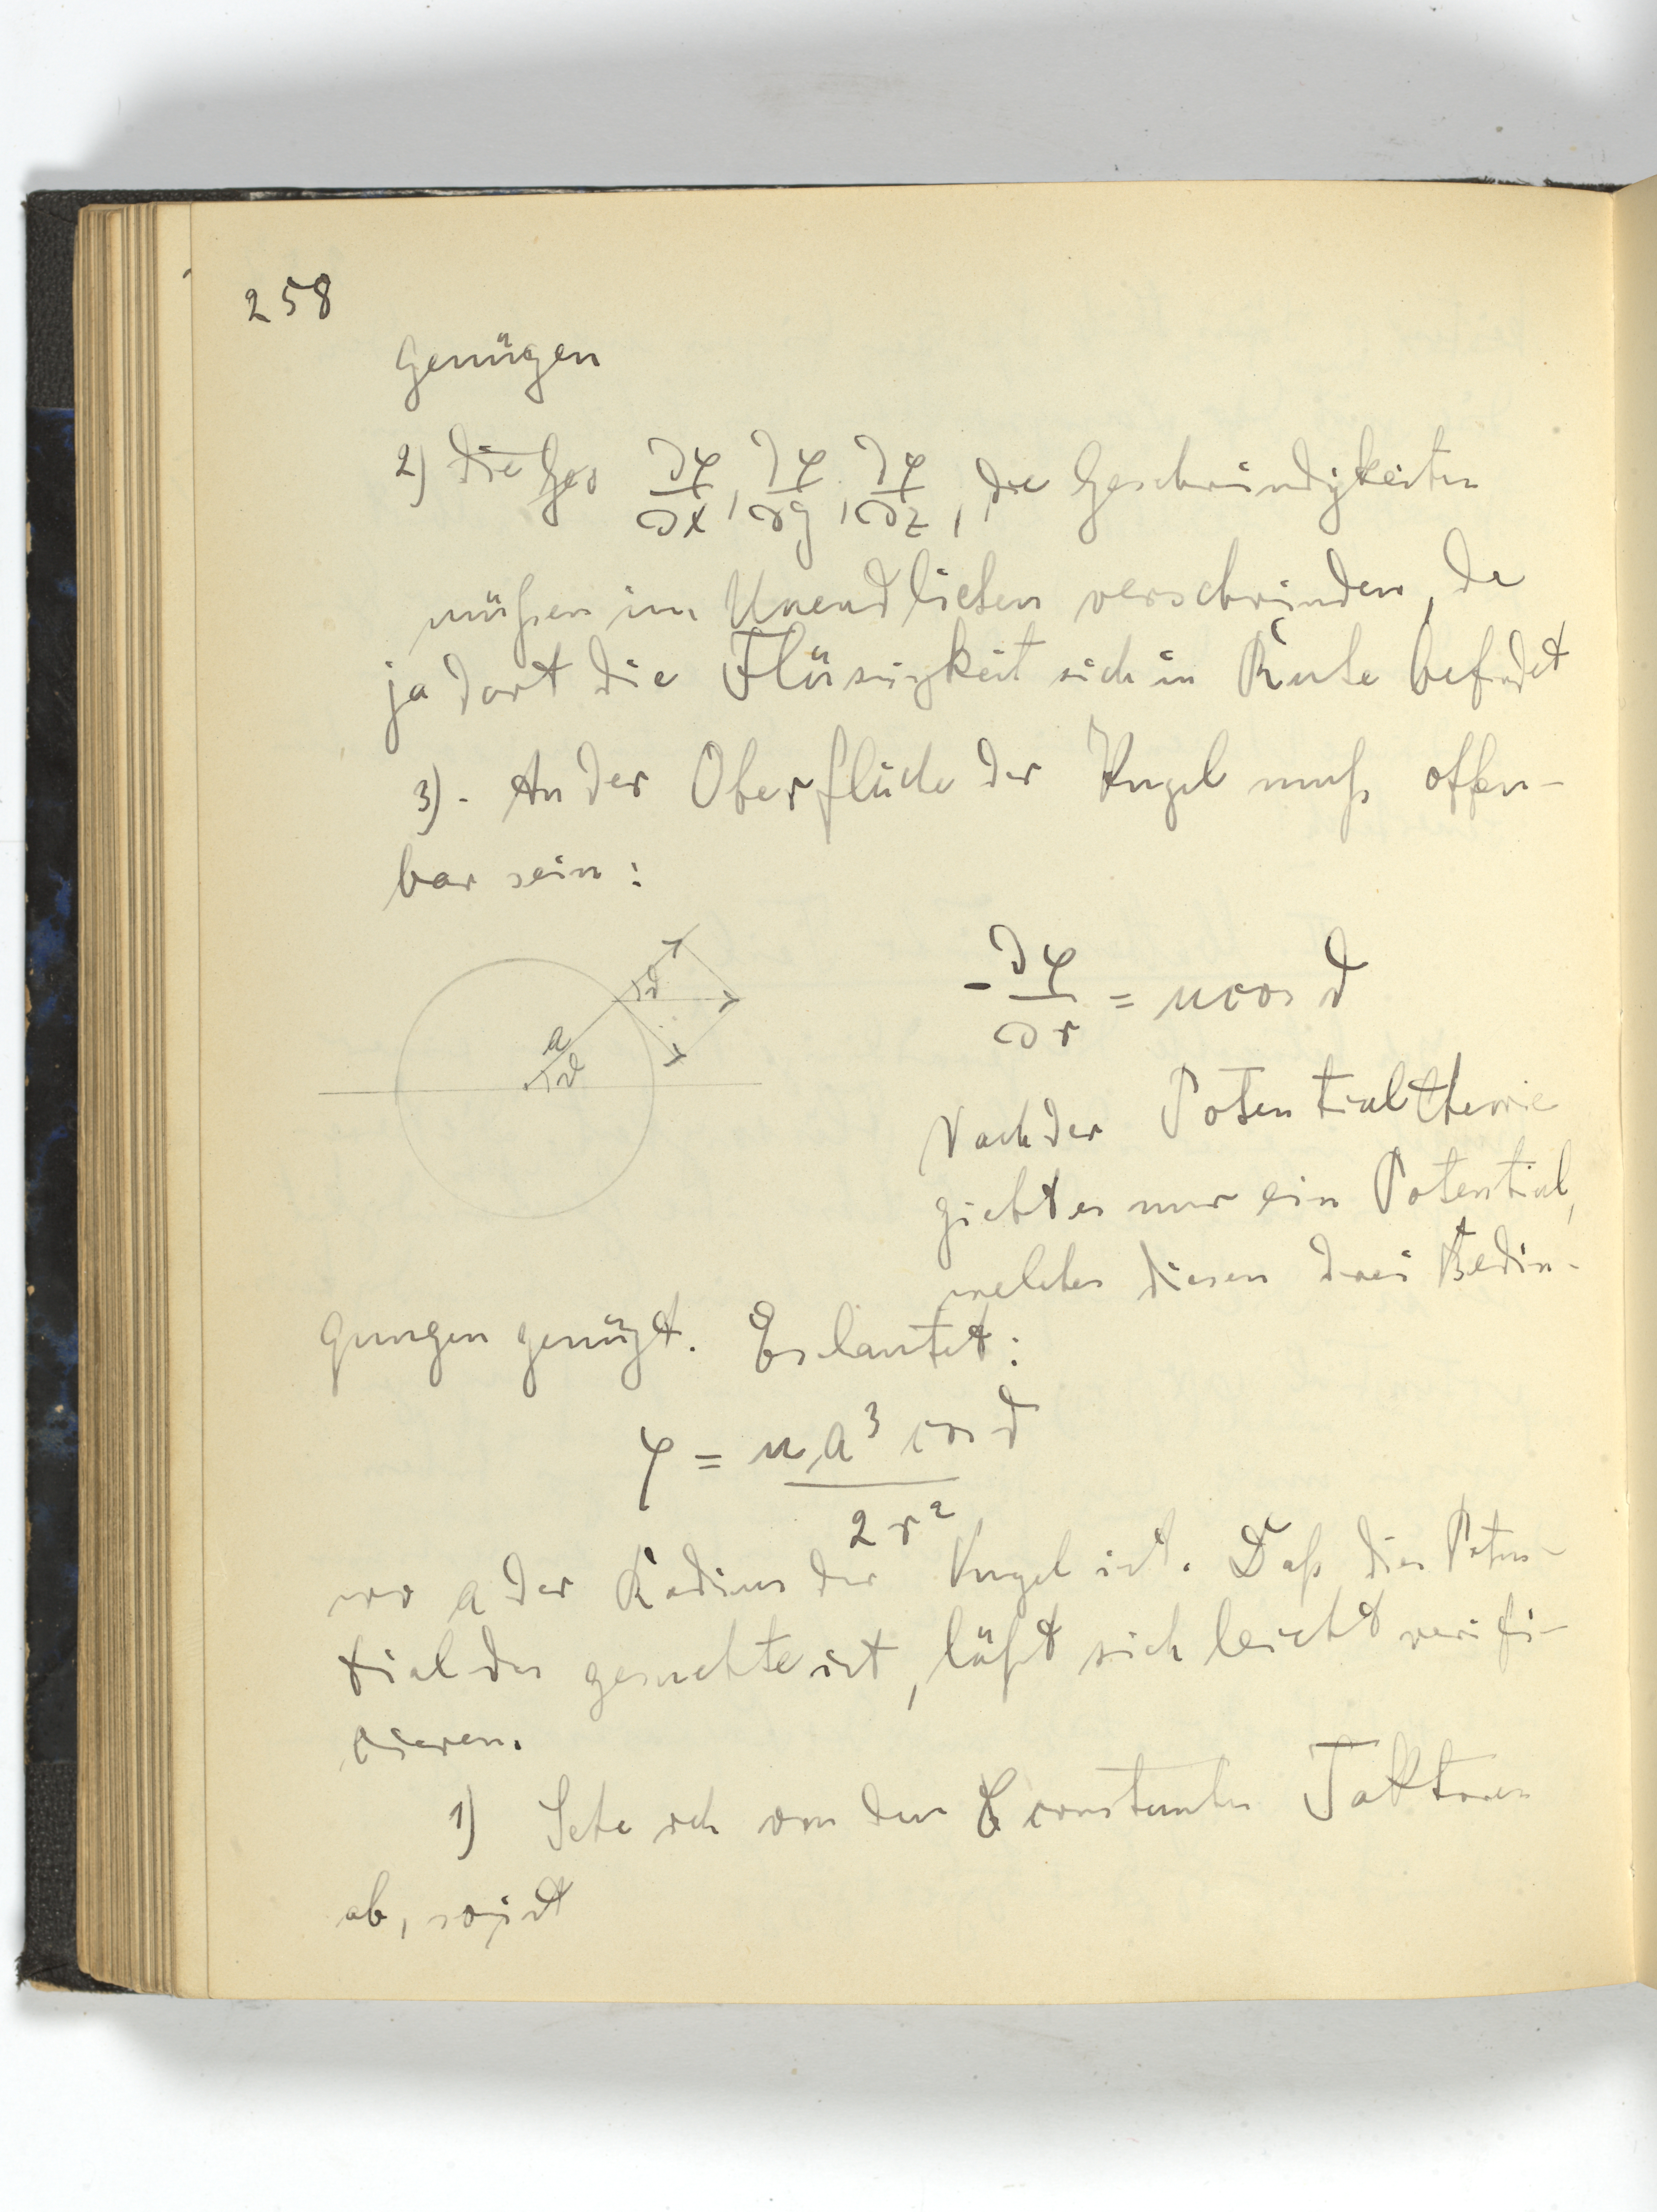 258
genügen
2) die Ges ∂φ/∂x, ∂φ/∂y, ∂φ/∂z, die Geschwindigkeiten
müßen im Unendlichen verschwinden, da
ja dort die Flüssigkeit sich in Ruhe befindet
3). An der Oberfläche der Kugel muß offen-
bar sein:
a
ϑ
ϑ
-∂φ/∂r = u cos ϑ
Nach der Potentialtheorie
giebt es nur ein Potential,
welches diesen drei Bedin-
gungen genügt. Es lautet:
φ = u a³ cos ϑ / 2 r²
wo a der Radius der Kugel ist. Daß dies Poten-
tial das gesuchte ist, läßt sich leicht verifi-
cieren.
1) Sehe ich von den constanten Faktoren
ab, so ist